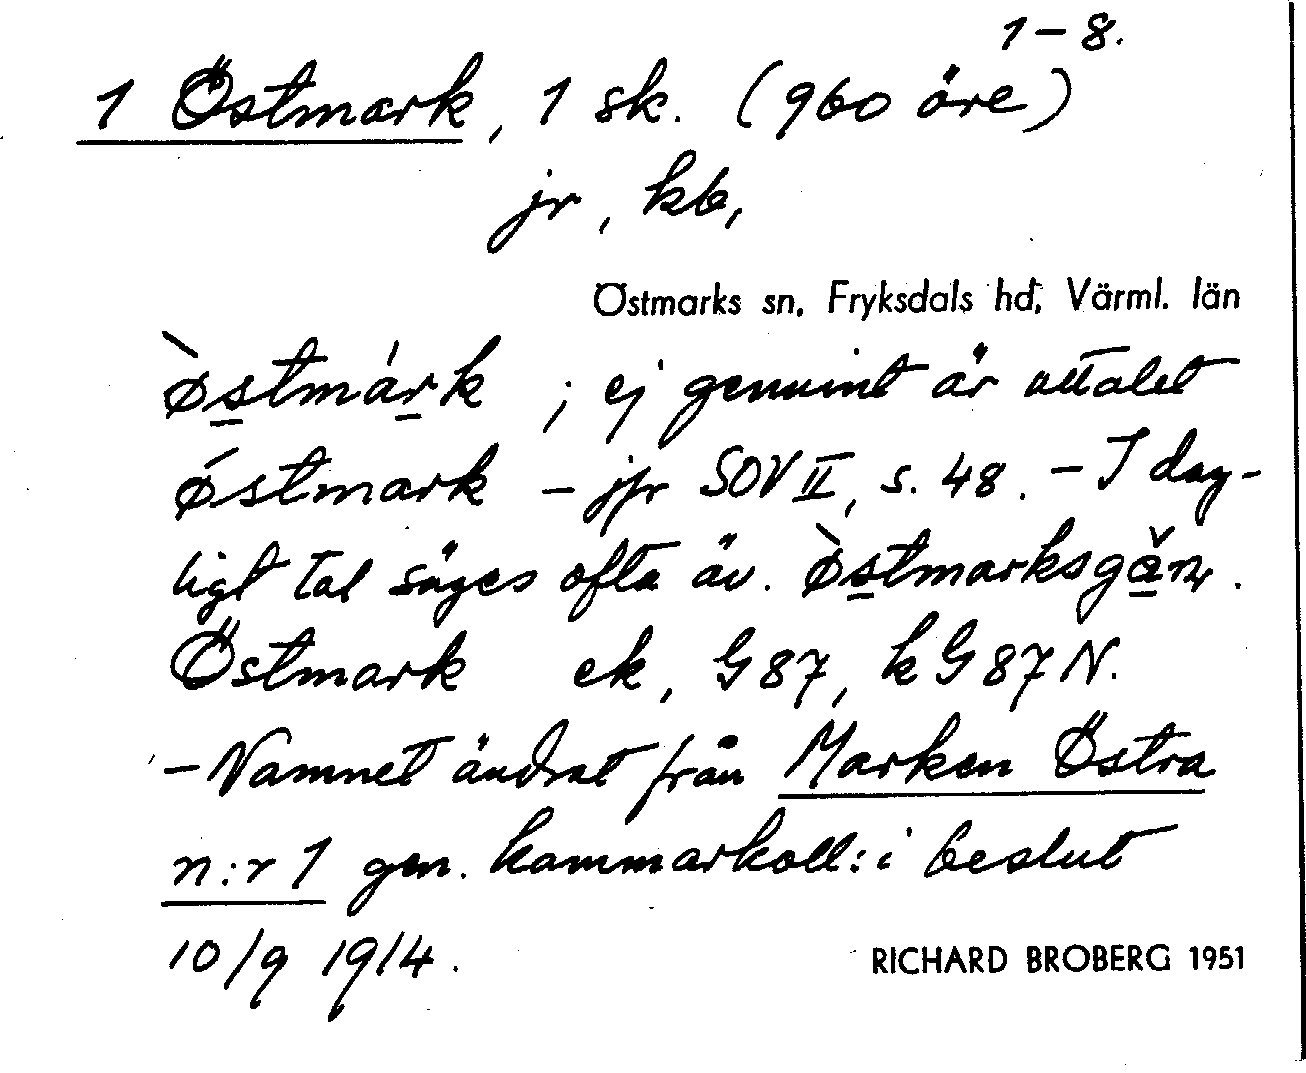 1-8.
1 Östmark, 1 sk. (960 öre)
jr, kb,
Östmarks sn, Fryksdals hd, Värml. län
ø̀s̲tmár̲k ; ej genuint är uttalet
ǿstmark - jfr SOV II, s. 48. - I dag-
ligt tal säges ofta äv. ø̀s̲tmarksgǎ̲rn.
Östmark ek, G 87, k G 87 N.
- Namnet ändrat från Marken Östra
n:r 1 gen. kammarkoll:i beslut
10/9 1914.
RICHARD BROBERG 1951